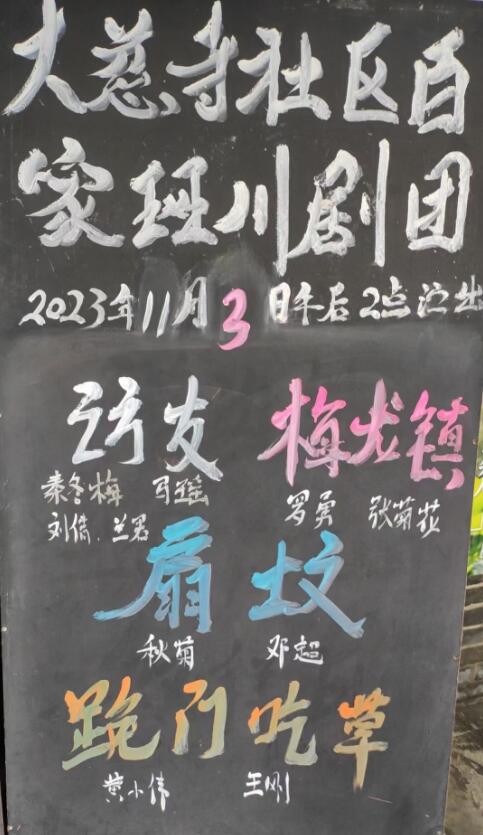 大慈寺社区百
家班川剧团
2023年11月3日午后2点演出
访友 梅龙镇
秦冬梅 马瑶 罗勇 张菊花
刘倩、兰君
扇坟
秋菊 邓超
跪门吃草
黄小伟 王刚